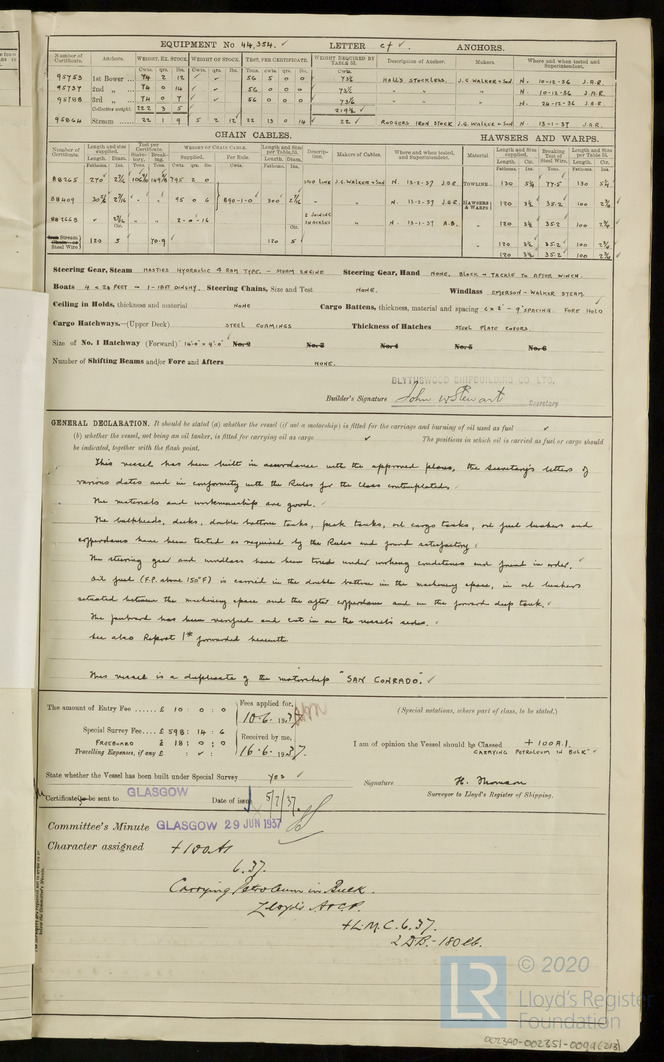 EQUIPMENT No 44,354. LETTER cf. ANCHORS.
Number of Certificate. Anchors. WEIGHT, EX. STOCK. WEIGHT OF STOCK. TEST, PER CERTIFICATE. WEIGHT REQUIRED BY TABLE 31. Description of Anchor. Makers. Where and when tested and Superintendent.
Cwts. qrs. lbs. Cwts. qrs. lbs. Tons. cwts. qrs. lbs. Cwts.
95753 1st Bower 74 2 12 56 5 0 0 73½ HALLS STOCKLESS. J.G. WALKER & SON N. 10-12-36 J.A.R.
95737 2nd „ 74 0 14 56 0 0 0 73½ „ „ N. 10-12-36 J.A.R.
95788 3rd „ 74 0 7 56 0 0 0 „ „ N. 24-12-36 J.A.R.
Collective weight 222 3 5
95864 Stream 22 1 9 5 2 12 22 13 0 14 22 RODGERS IRON STOCK J.G. WALKER & SON N. 13-1-37 J.A.R.
CHAIN CABLES. HAWSERS AND WARPS.
Number of Certificate. Length and size supplied. Test per Certificate. WEIGHT OF CHAIN CABLE. Length and Size per Table 31. Description. Makers of Cables. Where and when tested, and Superintendent. Material Length and Size supplied. Breaking Test of Steel Wire. Length and Size per Table 31.
Length. Diam. Statutory. Breaking. Supplied. Per Rule. Length. Diam. Length. Cir. Length. Cir.
Fathoms. Ins. Tons. Tons. Cwts. qrs. lbs. Cwts. qrs. lbs. Fathoms. Ins. Fathoms. Ins. Tons. Fathoms. Ins.
270 795 2 0 STUD LINK J.G. WALKER & SON N. 13-2-37 J.A.R. TOWLINE 130 5¼ 77.5 130 5¼
95 0 6 890-1-0 300 „ N. 13-2-37 J.A.R. HAWSERS & WARPS 120 3½ 35.2 100
2-0-16 SHACKLES „ N. 13-1-37 A.B. „ 120 3½ 35.2 100
Stream Steel Wire 120 5 70.9 120 5 „ 120 3½ 35.2 100
120 3½ 35.2 100
Steering Gear, Steam HASTIES HYDRAULIC 4 RAM TYPE - STEAM ENGINE Steering Gear, Hand NONE. BLOCK & TACKLE TO AFTER WINCH.
Boats 4 x 24 FEET - 1-18FT DINGHY. Steering Chains, Size and Test NONE. Windlass EMERSON-WALKER STEAM.
Ceiling in Holds, thickness and material NONE Cargo Battens, thickness, material and spacing 6 x 2" - 9" SPACING. FORE HOLD
Cargo Hatchways.—(Upper Deck) STEEL COAMINGS Thickness of Hatches STEEL PLATE COVERS.
Size of No. 1 Hatchway (Forward) No. 2 No. 3 No. 4 No. 5 No. 6
Number of Shifting Beams and/or Fore and Afters NONE.
BLYTHSWOOD SHIPBUILDING CO. LTD.
Builder's Signature John W Stewart Secretary
GENERAL DECLARATION. It should be stated (a) whether the vessel (if not a motorship) is fitted for the carriage and burning of oil used as fuel
(b) whether the vessel, not being an oil tanker, is fitted for carrying oil as cargo The positions in which oil is carried as fuel or cargo should
be indicated, together with the flash point.
This vessel has been built in accordance with the approved plans, the Secretary's letters of
various dates and in conformity with the Rules for the class contemplated.
The materials and workmanship are good.
The bulkheads, decks, double bottom tanks, peak tanks, oil cargo tanks, oil fuel bunkers and
cofferdams have been tested as required by the Rules and found satisfactory.
The steering gear and windlass have been tried under working conditions and found in order.
Oil fuel (F.P. above 150°F) is carried in the double bottom in the machinery space, in oil bunkers
situated between the machinery space and the after cofferdam and in the forward deep tank.
The freeboard has been verified and cut in on the vessel's sides.
See also Report 1* forwarded herewith.
This vessel is a duplicate of the motorship "SAN CONRADO".
The amount of Entry Fee £ 10 : 0 : 0 Fees applied for, 10.6. 1937 (Special notations, where part of class, to be stated.)
Special Survey Fee £ 598 : 14 : 6 Received by me,
FREEBOARD £ 18 : 0 : 0
Travelling Expenses, if any £ : : 16.6. 1937.
I am of opinion the Vessel should be Classed + 100 A.1.
CARRYING PETROLEUM IN BULK"
State whether the Vessel has been built under Special Survey Yes Signature H. Thomson
Surveyor to Lloyd's Register of Shipping.
Certificate to be sent to GLASGOW Date of issue 5/7/37.
Committee's Minute GLASGOW 29 JUN 1937
Character assigned +100A1
6.37.
Carrying Petroleum in Bulk.
Lloyd's A&CP.
+L.M.C. 6.37.
2 DB.-180 lb.
LR © 2020
Lloyd's Register
Foundation
002340-002351-0094 (2/3)